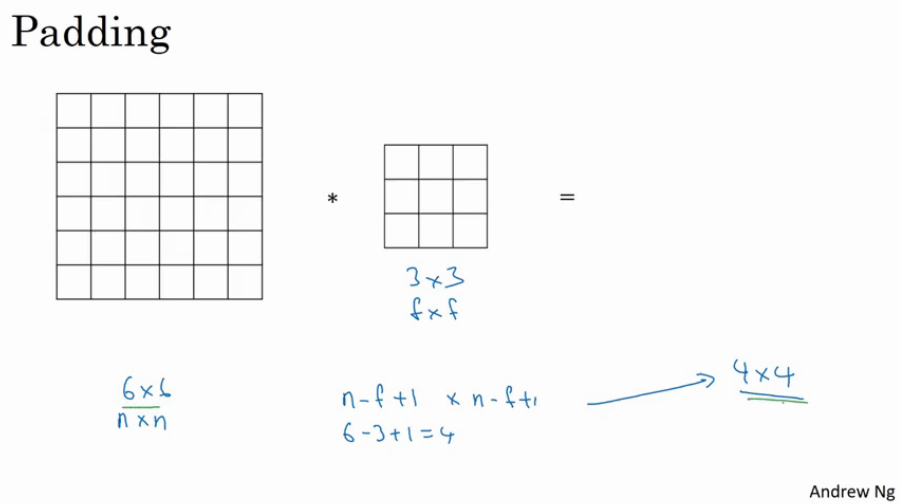 Padding
* =
3 x 3
f x f
6 x 6
n x n
n - f + 1 x n - f + 1
6 - 3 + 1 = 4
4 x 4
Andrew Ng